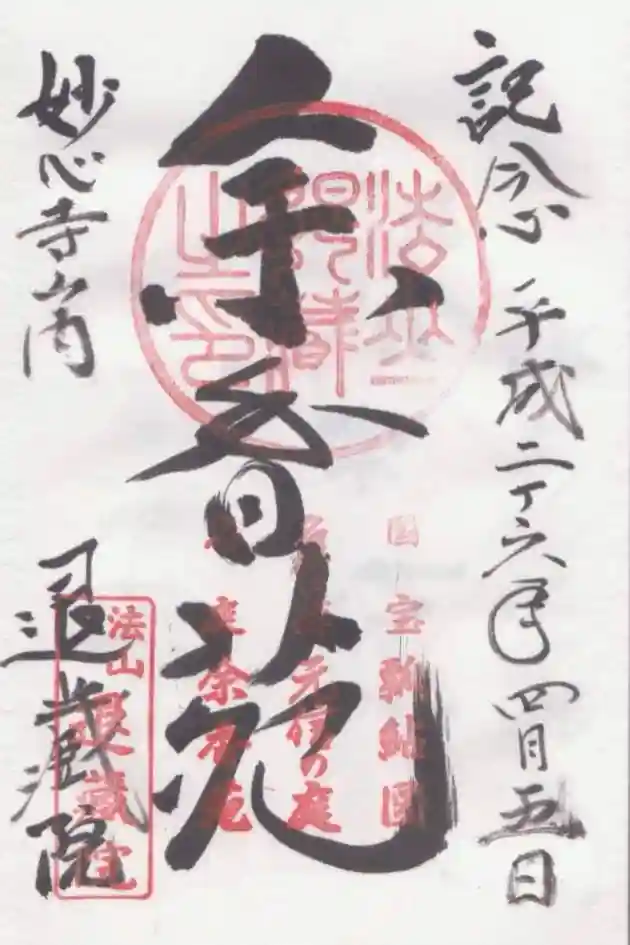 記念 平成二十六年四月五日
余香苑
妙心寺山内
退蔵院
国宝瓢鮎図
元信の庭
余香苑
法山退蔵院